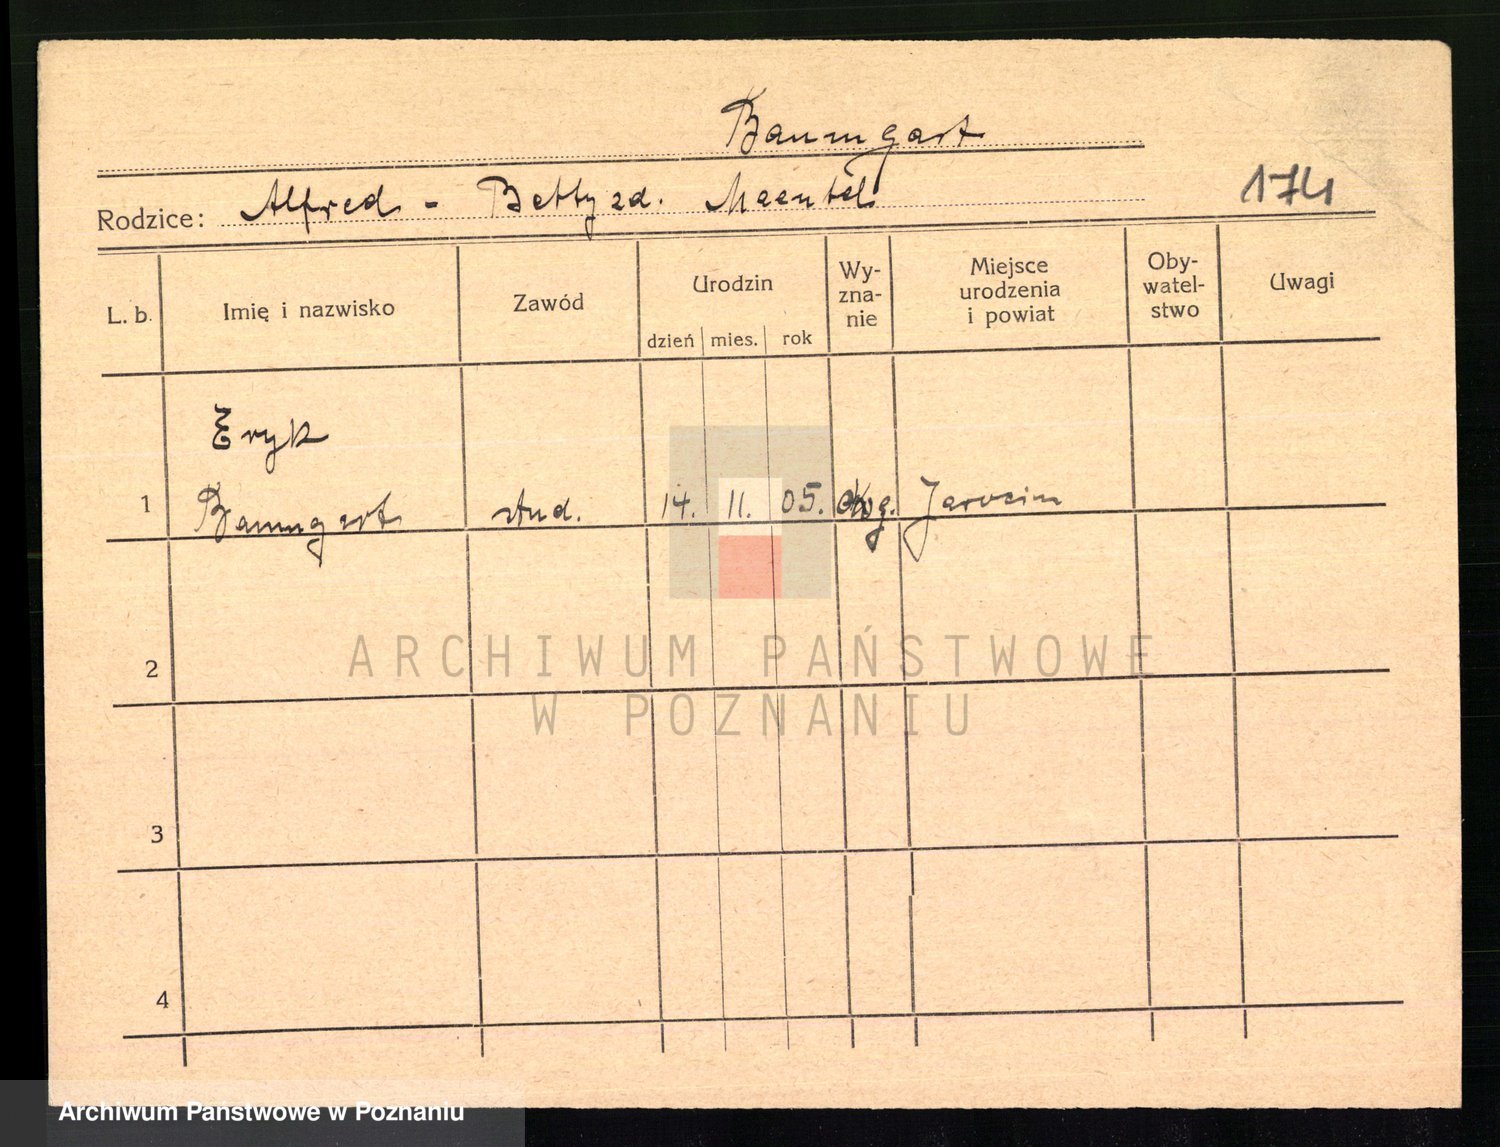 Baumgart
Rodzice: Alfred - Betty zd.
174
L. b. Imię i nazwisko Zawód Urodzin dzień mies. rok Wy-zna-nie Miejsce urodzenia i powiat Oby-watel-stwo Uwagi
Eryk
1 Baumgart stud. 14. 11. 05. Jarocin
2
ARCHIWUM PAŃSTWOWE
W POZNANIU
3
4
Archiwum Państwowe w Poznaniu